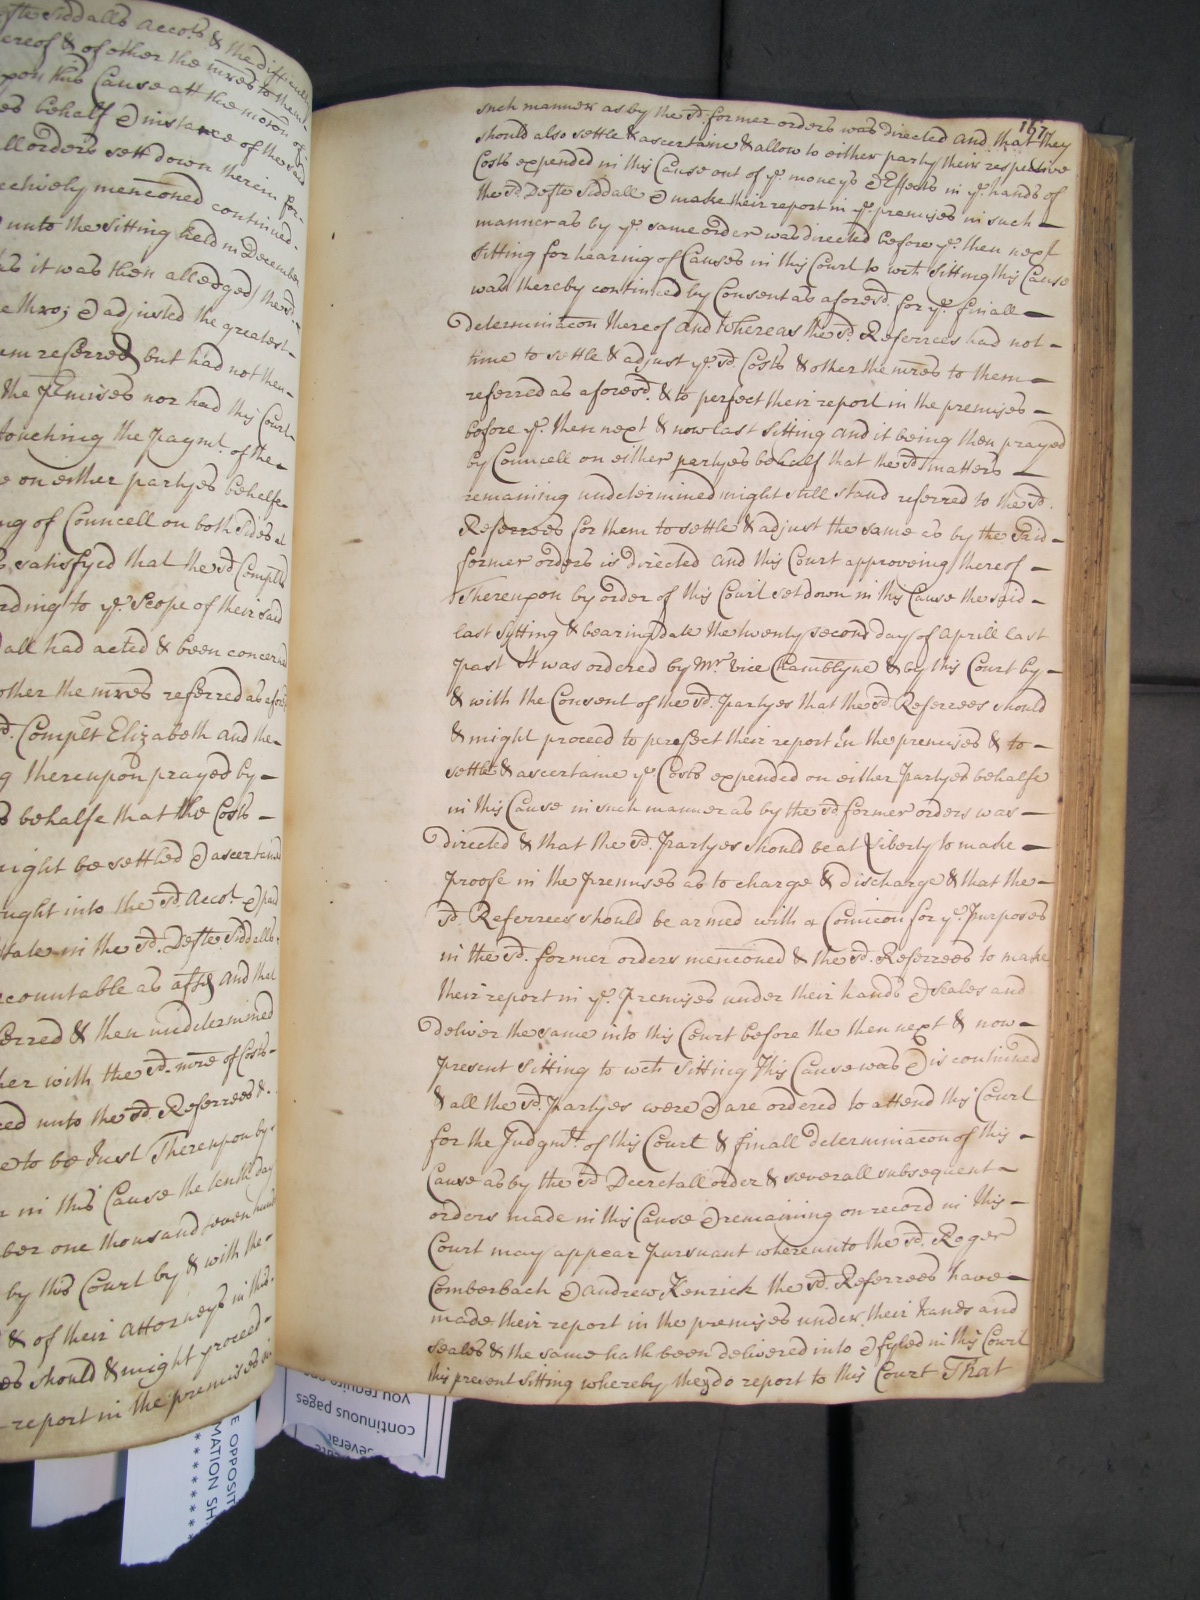 efts Siddalls accots & the difficulty
ereof & of other the mres to them
pon this Cause att the motion of
es behalf & instance of the said
ll orders sett down therein for
ectively menconed continued
unto the Sitting held in December
as it was then alledged the sd.
e thro; & adjusted the greatest
em referred but had not then
the premises nor had this Court
touching the paymt. of the
e on either partyes behalfe
ng of Councell on both sides et
satisfyed that the sd. Complt
rding to ye. Scope of their said
all had acted & been concerned
other the mres referred as afores
d. Complt Elizabeth and the
g thereupon prayed by
s behalfe that the Costs
might be settled & ascertained
ught into the sd. acco.t & paid
state in the sd. Defte Siddalls
ccountable as afsd and that
erred & then undetermined
her with the sd. mre of Costs
red unto the sd. Referrees &.
e to be Just Thereupon by
r in this Cause the tenth day
ber one thousand seven hund
by this Court by & with the
& of their attorneys in this
es should & might proceed
report in the premises in
167
such manner as by the sd. former orders was directed and that they
should also settle & ascertaine & allow to either party their respective
Costs expended in this Cause out of ye. moneys & Effects in ye. hands of
the sd. Defte Siddall & make their report in ye. premises in such
manner as by ye. same order was directed before ye. then next
Sitting for hearing of Causes in this Court to wch Sitting this Cause
was thereby continued by Consent as aforesd. for ye. finall
determinacon thereof and Whereas the sd. Referrees had not
time to settle & adjust ye. sd. Costs & other the mres to them
referred as aforesd. & to perfect their report in the premises
before ye. then next & now last Sitting and it being then prayed
by Councell on either partyes behalf that the sd. matters
remaining undetermined might still stand referred to the sd.
Referrees for them to settle & adjust the same as by the said
former orders is directed and this Court approveing thereof
Thereupon by order of this Court set down in this Cause the said
last Sitting & bearing date the twenty second day of Aprill last
past It was ordered by Mr. Vice Chamblyne & by this Court by
& with the Consent of the sd. partyes that the sd. Referrees should
& might proceed to perfect their report In the premises & to
settle & ascertaine ye. Costs expended on either partyes behalfe
in this Cause in such manner as by the sd. former orders was
directed & that the sd. partyes should be at Liberty to make
proofe in the premises as to charge & discharge & that the
sd. Referrees should be armed with a Comicon for ye. Purposes
in the sd. former orders menconed & the sd. Referrees to make
their report in ye. premises under their hands & seales and
deliver the same into this Court before the then next & now
present Sitting to wch Sitting This Cause was & is continued
& all the sd. partyes were & are ordered to attend this Court
for the Judgmt. of this Court & finall determinacon of this
Cause as by the sd. Decretall order & severall subsequent
orders made in this Cause & remaining on record in this
Court may appear pursuant whereunto the sd. Roger
Comberbach & Andrew Kenrick the sd. Referrees have
made their report in the premises under their hands and
seales & the same hath been delivered into & fyled in this Court
this present Sitting whereby they do report to this Court That
you require
continuous pages
severa
E OPPOSIT
MATION SH
* * * * * * * *